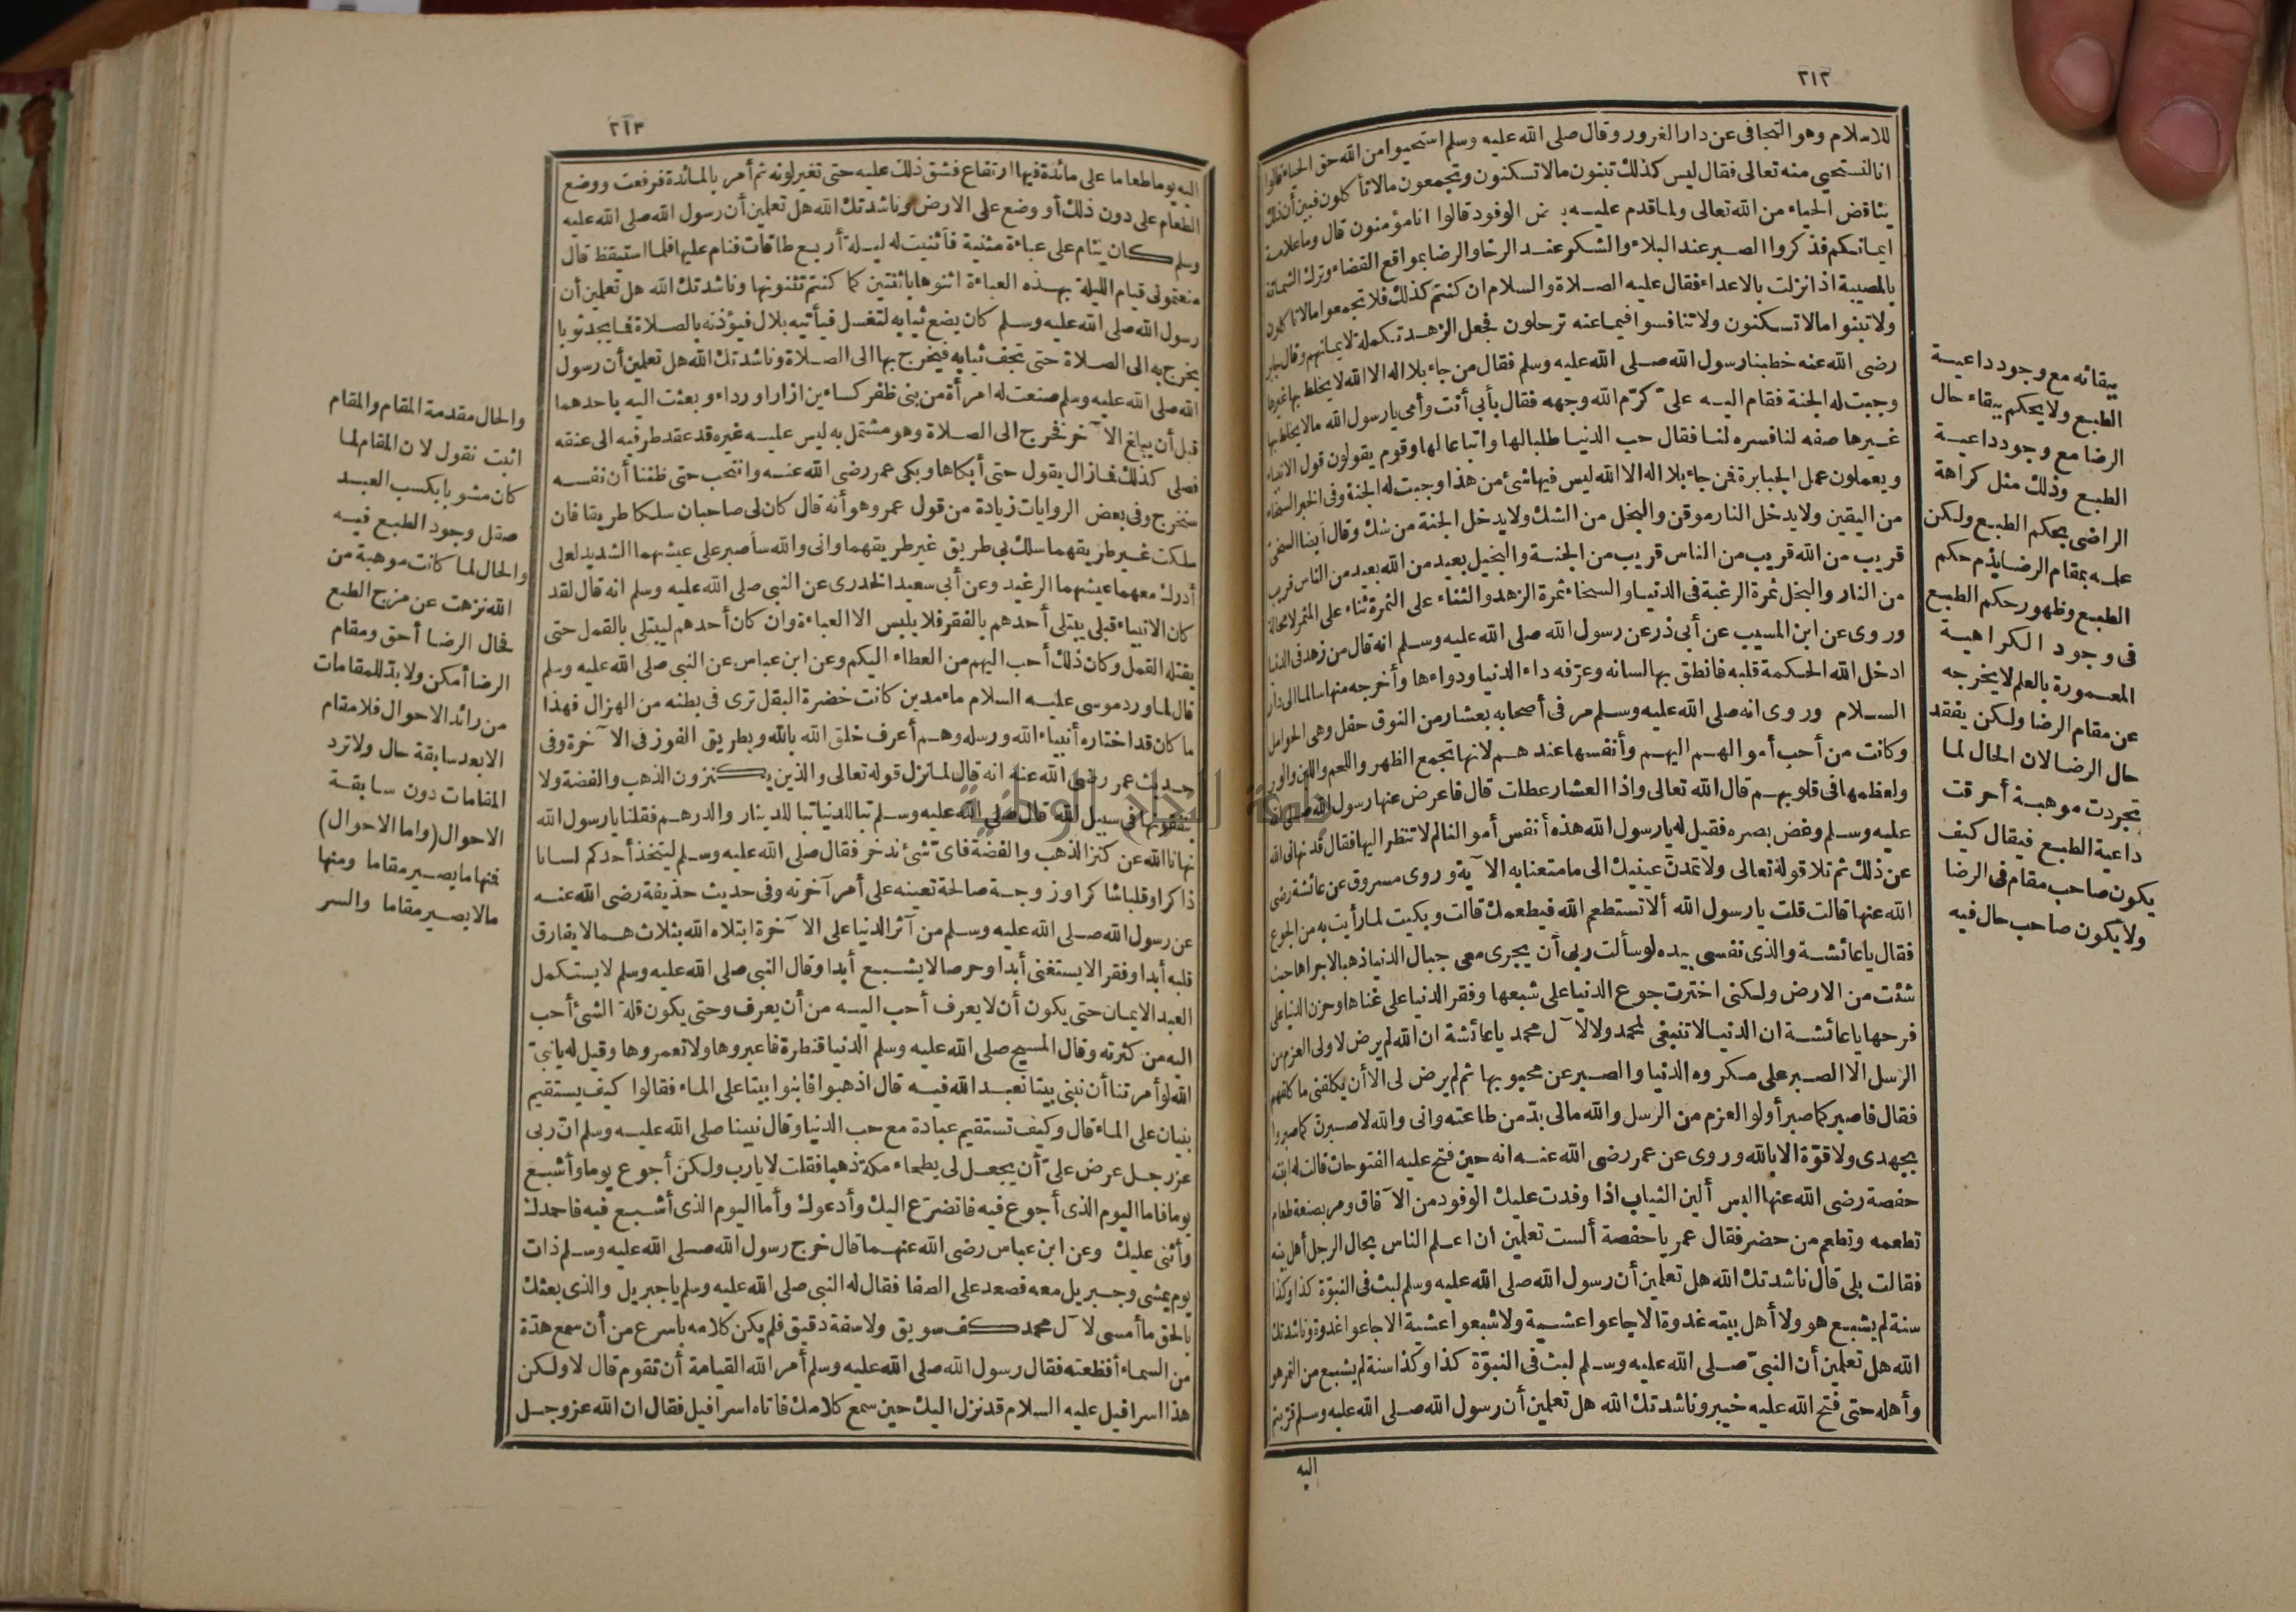 ٢١٢
للاسلام وهو التجافى عن دار الغرور وقال صلى الله عليه وسلم استحيوا من الله حق الحياء قالوا
انا لنستحيى منه تعالى فقال ليس كذلك تبنون مالا تسكنون وتجمعون مالا تأكلون فبين أن ذلك
يناقض الحياء من الله تعالى ولما قدم عليه بعض الوفود قالوا انا مؤمنون قال وما علامة
ايمانكم فذكروا الصبر عند البلاء والشكر عند الرخاء والرضا بمواقع القضاء وترك الشماتة
بالمصيبة اذا نزلت بالاعداء فقال عليه الصلاة والسلام ان كنتم كذلك فلا تجمعوا مالا تأكلون
ولا تبنوا مالا تسكنون ولا تنافسوا فيما عنه ترحلون فجعل الزهد تكملة لايمانهم وقال جابر
رضى الله عنه خطبنا رسول الله صلى الله عليه وسلم فقال من جاء بلا اله الا الله لا يخلط بها غيرها
وجبت له الجنة فقام اليه على كرّم الله وجهه فقال بأبى أنت وأمى يا رسول الله مالا يخلط بها
غيرها صفه لنا فسره لنا فقال حب الدنيا طلبا لها واتباعا لها وقوم يقولون قول الانبياء
ويعملون عمل الجبابرة فمن جاء بلا اله الا الله ليس فيها شئ من هذا وجبت له الجنة وفى الخبر السخاء
من اليقين ولا يدخل النار موقن والبخل من الشك ولا يدخل الجنة من شك وقال أيضا السخى
قريب من الله قريب من الناس قريب من الجنة والبخيل بعيد من الله بعيد من الناس قريب
من النار والبخل ثمرة الرغبة فى الدنيا والسخاء ثمرة الزهد والثناء على الثمرة ثناء على المثمر لا محالة
وروى عن ابن المسيب عن أبى ذر عن رسول الله صلى الله عليه وسلم انه قال من زهد فى الدنيا
ادخل الله الحكمة قلبه فانطق بها لسانه وعرّفه داء الدنيا ودواءها وأخرجه منها سالما الى دار
السلام وروى انه صلى الله عليه وسلم مر فى أصحابه بعشار من النوق حفل وهى الحوامل
وكانت من أحب أموالهم اليهم وأنفسها عندهم لانها تجمع الظهر واللحم واللبن والوبر
ولعظمها فى قلوبهم قال الله تعالى واذا العشار عطلت قال فاعرض عنها رسول الله صلى الله
عليه وسلم وغض بصره فقيل له يا رسول الله هذه أنفس أموالنا لم لا تنظر اليها فقال قد نهانى الله
عن ذلك ثم تلا قوله تعالى ولا تمدنّ عينيك الى ما متعنا به الآية وروى مسروق عن عائشة رضى
الله عنها قالت قلت يا رسول الله ألا تستطعم الله فيطعمك قالت وبكيت لما رأيت به من الجوع
فقال يا عائشة والذى نفسى بيده لو سألت ربى أن يجرى معى جبال الدنيا ذهبا لاجراها حيث
شئت من الارض ولكنى اخترت جوع الدنيا على شبعها وفقر الدنيا على غناها وحزن الدنيا على
فرحها يا عائشة ان الدنيا لا تنبغى لمحمد ولا لآل محمد يا عائشة ان الله لم يرض لاولى العزم من
الرسل الا الصبر على مكروه الدنيا والصبر عن محبوبها ثم لم يرض لى الا أن يكلفنى ما كلفهم
فقال فاصبر كما صبر أولوا العزم من الرسل والله مالى بدّ من طاعته وانى والله لاصبرن كما صبروا
بجهدى ولا قوّة الا بالله وروى عن عمر رضى الله عنه انه حين فتح عليه الفتوحات قالت له ابنته
حفصة رضى الله عنها البس ألين الثياب اذا وفدت عليك الوفود من الآفاق ومر بصنعة طعام
تطعمه وتطعم من حضر فقال عمر يا حفصة ألست تعلمين ان اعلم الناس بحال الرجل أهل بيته
فقالت بلى قال ناشدتك الله هل تعلمين أن رسول الله صلى الله عليه وسلم لبث فى النبوّة كذا وكذا
سنة لم يشبع هو ولا أهل بيته غدوة الا جاعوا عشية ولا شبعوا عشية الا جاعوا غدوة وناشدتك
الله هل تعلمين أن النبىّ صلى الله عليه وسلم لبث فى النبوّة كذا وكذا سنة لم يشبع من التمر هو
وأهله حتى فتح الله عليه خيبر وناشدتك الله هل تعلمين أن رسول الله صلى الله عليه وسلم قربتم
اليه
ببقائه مع وجود داعية
الطبع ولا يحكم ببقاء حال
الرضا مع وجود داعية
الطبع وذلك مثل كراهة
الراضى بحكم الطبع ولكن
علمه بمقام الرضا يذم حكم
الطبع وظهور حكم الطبع
فى وجود الكراهية
المعمورة بالعلم لا يخرجه
عن مقام الرضا ولكن يفقد
حال الرضا لان الحال لما
تجردت موهبة أحرقت
داعية الطبع فيقال كيف
يكون صاحب مقام فى الرضا
ولا يكون صاحب حال فيه
٢١٣
اليه يوما طعاما على مائدة فيها ارتفاع فشق ذلك عليه حتى تغير لونه ثم أمر بالمائدة فرفعت ووضع
الطعام على دون ذلك أو وضع على الارض وناشدتك الله هل تعلمين أن رسول الله صلى الله عليه
وسلم كان ينام على عباءة مثنية فأثنيت له ليلة أربع طاقات فنام عليها فلما استيقظ قال
منعتمونى قيام الليلة بهذه العباءة اثنوها باثنتين كما كنتم تثنونها وناشدتك الله هل تعلمين أن
رسول الله صلى الله عليه وسلم كان يضع ثيابه لتغسل فيأتيه بلال فيؤذنه بالصلاة فما يجد ثوبا
يخرج به الى الصلاة حتى تجف ثيابه فيخرج بها الى الصلاة وناشدتك الله هل تعلمين أن رسول
الله صلى الله عليه وسلم صنعت له امرأة من بنى ظفر كساءين ازارا ورداء وبعثت اليه باحدهما
قبل أن يبلغ الآخر فخرج الى الصلاة وهو مشتمل به ليس عليه غيره قد عقد طرفيه الى عنقه
فصلى كذلك فمازال يقول حتى أبكاها وبكى عمر رضى الله عنه وانتحب حتى ظننا أن نفسه
ستخرج وفى بعض الروايات زيادة من قول عمر وهو أنه قال كان لى صاحبان سلكا طريقا فان
سلكت غير طريقهما سلك بى طريق غير طريقهما وانى والله سأصبر على عيشهما الشديد لعلى
أدرك معهما عيشهما الرغيد وعن أبى سعيد الخدرى عن النبى صلى الله عليه وسلم انه قال لقد
كان الانبياء قبلى يبتلى أحدهم بالفقر فلا يلبس الا العباءة وان كان أحدهم ليبتلى بالقمل حتى
يقتله القمل وكان ذلك أحب اليهم من العطاء اليكم وعن ابن عباس عن النبى صلى الله عليه وسلم
قال لما ورد موسى عليه السلام ماء مدين كانت خضرة البقل ترى فى بطنه من الهزال فهذا
ما كان قد اختاره أنبياء الله ورسله وهم أعرف خلق الله بالله وبطريق الفوز فى الآخرة وفى
حديث عمر رضى الله عنه انه قال لما نزل قوله تعالى والذين يكنزون الذهب والفضة ولا
ينفقونها فى سبيل الله قال صلى الله عليه وسلم تبا للدنيا تبا للدينار والدرهم فقلنا يا رسول الله
نهانا الله عن كنز الذهب والفضة فاىّ شئ ندخر فقال صلى الله عليه وسلم ليتخذ أحدكم لسانا
ذاكرا وقلبا شاكرا وزوجة صالحة تعينه على أمر آخرته وفى حديث حذيفة رضى الله عنه
عن رسول الله صلى الله عليه وسلم من آثر الدنيا على الآخرة ابتلاه الله بثلاث هما لا يفارق
قلبه أبدا وفقرا لا يستغنى أبدا وحرصا لا يشبع أبدا وقال النبى صلى الله عليه وسلم لا يستكمل
العبد الايمان حتى يكون أن لا يعرف أحب اليه من أن يعرف وحتى يكون قلة الشئ أحب
اليه من كثرته وقال المسيح صلى الله عليه وسلم الدنيا قنطرة فاعبروها ولا تعمروها وقيل له يا نبىّ
الله لو أمرتنا أن نبنى بيتا نعبد الله فيه قال اذهبوا فابنوا بيتا على الماء فقالوا كيف يستقيم
بنيان على الماء قال وكيف تستقيم عبادة مع حب الدنيا وقال نبينا صلى الله عليه وسلم انّ ربى
عز وجل عرض علىّ أن يجعل لى بطحاء مكة ذهبا فقلت لا يارب ولكن أجوع يوما وأشبع
يوما فاما اليوم الذى أجوع فيه فاتضرّع اليك وأدعوك وأما اليوم الذى أشبع فيه فاحمدك
وأثنى عليك وعن ابن عباس رضى الله عنهما قال خرج رسول الله صلى الله عليه وسلم ذات
يوم يمشى وجبريل معه فصعد على الصفا فقال له النبى صلى الله عليه وسلم يا جبريل والذى بعثك
بالحق ما أمسى لآل محمد كف سويق ولا سفة دقيق فلم يكن كلامه باسرع من أن سمع هدّة
من السماء أفظعته فقال رسول الله صلى الله عليه وسلم أمر الله القيامة أن تقوم قال لا ولكن
هذا اسرافيل عليه السلام قد نزل اليك حين سمع كلامك فاتاه اسرافيل فقال ان الله عز وجل
والحال مقدمة المقام والمقام
اثبت نقول لان المقام لما
كان مشوبا بكسب العبد
صقل وجود الطبع فيه
والحال لما كانت موهبة من
الله نزهت عن مزج الطبع
فحال الرضا أحق ومقام
الرضا أمكن ولا بدّ للمقامات
من زائد الاحوال فلا مقام
الا بعد سابقة حال ولا ترد
المقامات دون سابقة
الاحوال (واما الاحوال)
فمنها ما يصير مقاما ومنها
مالا يصير مقاما والسر
جامعة النجاح الوطنية